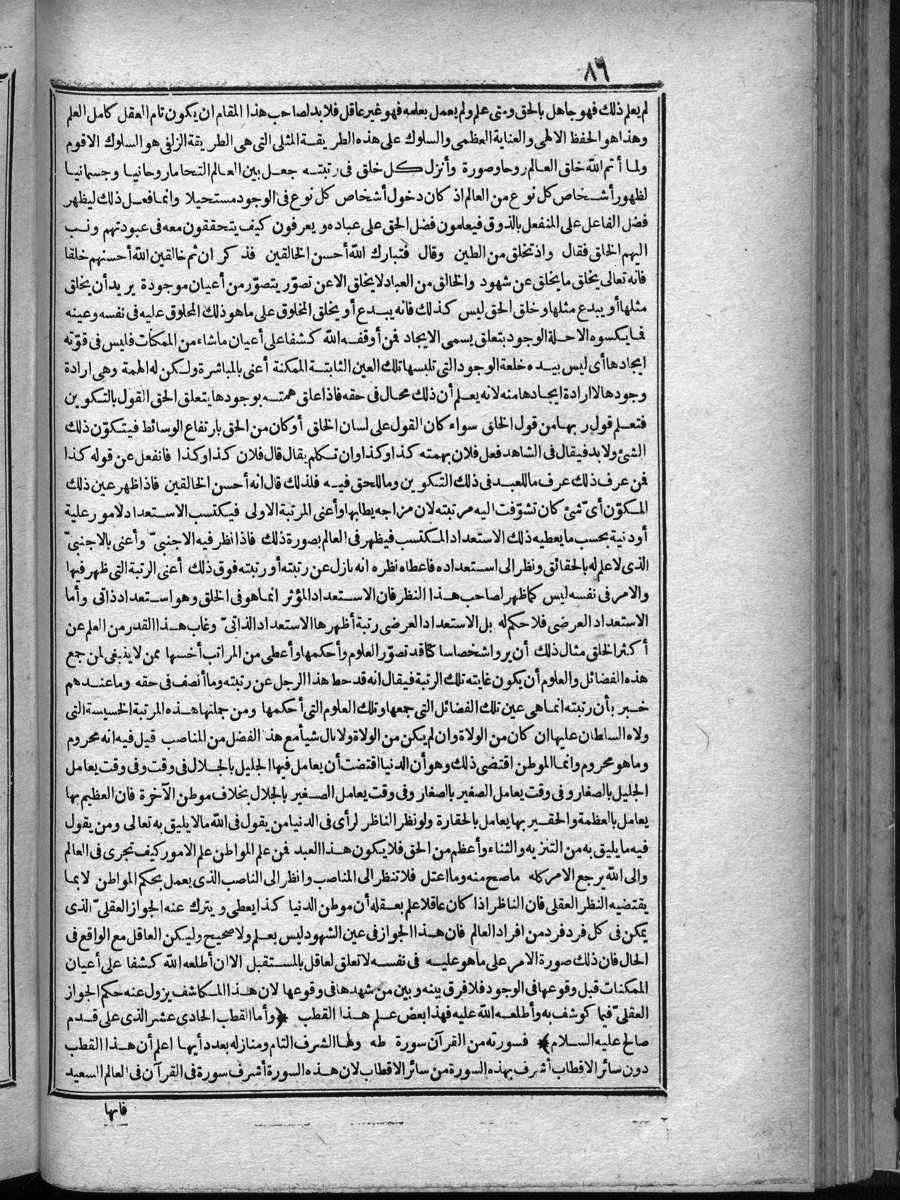 ٨٦
لم يعلم ذلك فهو جاهل بالحق ومتى علم ولم يعمل بعلمه فهو غير عاقل فلا بد لصاحب هذا المقام ان يكون تام العقل كامل العلم
وهذا هو الحفظ الالهى والعناية العظمى والسلوك على هذه الطريقة المثلى التى هى الطريقة الزلفى هو السلوك الاقوم
ولما أتم الله خلق العالم روحا وصورة وأنزل كل خلق فى رتبته جعل بين العالم التحاما روحانيا وجسمانيا
لظهور أشخاص كل نوع من العالم اذ كان دخول أشخاص كل نوع فى الوجود مستحيلا وانما فعل ذلك ليظهر
فضل الفاعل على المنفعل بالذوق فيعلمون فضل الحق على عباده ويعرفون كيف يتحققون معه فى عبودتهم ونسب
اليهم الخلق فقال واذ تخلق من الطين وقال فتبارك الله أحسن الخالقين فذكر ان ثم خالقين الله أحسنهم خلقا
فانه تعالى يخلق ما يخلق عن شهود والخالق من العباد لا يخلق الا عن تصوّر يتصوّر من أعيان موجودة يريد أن يخلق
مثلها أو يبدع مثلها وخلق الحق ليس كذلك فانه يبدع أو يخلق المخلوق على ما هو ذلك المخلوق عليه فى نفسه وعينه
فما يكسوه الاحلة الوجود بتعلق يسمى الايجاد فمن أوقفه الله كشفا على أعيان ما شاء من الممكنات فليس فى قوّته
ايجادها أى ليس بيده خلعة الوجود التى تلبسها تلك العين الثابتة الممكنة أعنى بالمباشرة ولكن له الهمة وهى ارادة
وجودها لا ارادة ايجادها منه لانه يعلم أن ذلك محال فى حقه فاذا علق همته بوجودها يتعلق الحق القول بالتكوين
فتعلم قول ربها من قول الخلق سواء كان القول على لسان الخلق أو كان من الحق بارتفاع الوسائط فيتكوّن ذلك
الشئ ولا بد فيقال فى الشاهد فعل فلان بهمته كذا وكذا وان تكلم يقال قال فلان كذا وكذا فانفعل عن قوله كذا
فمن عرف ذلك عرف ما للعبد فى ذلك التكوين وما للحق فيه فلذلك قال انه أحسن الخالقين فاذا ظهر عين ذلك
المكوّن أىّ شئ كان تشوّفت اليه مرتبته لان مزاجه يطلبها وأعنى المرتبة الاولى فيكتسب الاستعداد لامور علية
أو دنية بحسب ما يعطيه ذلك الاستعداد المكتسب فيظهر فى العالم بصورة ذلك فاذا نظر فيه الاجنبىّ وأعنى بالاجنبىّ
الذى لا علم له بالحقائق ونظر الى استعداده فاعطاه نظره انه نازل عن رتبته أو رتبته فوق ذلك أعنى الرتبة التى ظهر فيها
والامر فى نفسه ليس كما ظهر لصاحب هذا النظر فان الاستعداد المؤثر انما هو فى الخلق وهو استعداد ذاتى وأما
الاستعداد العرضى فلا حكم له بل الاستعداد العرضى رتبة أظهرها الاستعداد الذاتىّ وغاب هذا القدر من العلم عن
أكثر الخلق مثال ذلك أن يروا شخصا ساكنا قد تصوّر العلوم وأحكمها وأعطى من المراتب أخسها ممن لا ينبغى لمن جمع
هذه الفضائل والعلوم أن يكون غايته تلك الرتبة فيقال انه قد حط هذا الرجل عن رتبته وما أنصف فى حقه وما عندهم
خبر بأن رتبته انما هى عين تلك الفضائل التى جمعها وتلك العلوم التى أحكمها ومن جملتها هذه المرتبة الخسيسة التى
ولاه السلطان عليها ان كان من الولاة وان لم يكن من الولاة ولا نال شيأ مع هذا الفضل من المناصب قيل فيه انه محروم
وما هو محروم وانما الموطن اقتضى ذلك وهو أن الدنيا اقتضت أن يعامل فيها الجليل بالجلال فى وقت وفى وقت يعامل
الجليل بالصغار وفى وقت يعامل الصغير بالصغار وفى وقت يعامل الصغير بالجلال بخلاف موطن الآخرة فان العظيم بها
يعامل بالعظمة والحقير بها يعامل بالحقارة ولو نظر الناظر لرأى فى الدنيا من يقول فى الله ما لا يليق به تعالى ومن يقول
فيه ما يليق به من التنزيه والثناء وأعظم من الحق فلا يكون هذا العبد فمن علم المواطن علم الامور كيف تجرى فى العالم
والى الله يرجع الامر كله ما صح منه وما اعتل فلا تنظر الى المناصب وانظر الى الناصب الذى يعمل بحكم المواطن لا بما
يقتضيه النظر العقلى فان الناظر اذا كان عاقلا علم بعقله أن موطن الدنيا كذا يعطى ويترك عنه الجواز العقلىّ الذى
يمكن فى كل فرد فرد من افراد العالم فان هذا الجواز فى عين الشهود ليس بعلم ولا صحيح وليكن العاقل مع الواقع فى
الحال فان ذلك صورة الامر على ما هو عليه فى نفسه لا تعلق لعاقل بالمستقبل الا ان أطلعه الله كشفا على أعيان
الممكنات قبل وقوعها فى الوجود فلا فرق بينه وبين من شهدها فى وقوعها لان هذا المكاشف يزول عنه حكم الجواز
العقلىّ فيما كوشف به وأطلعه الله عليه فهذا بعض علم هذا القطب ﴿وأما القطب الحادى عشر الذى على قدم
صالح عليه السلام﴾ فسورته من القرآن سورة طه ولها الشرف التام ومنازله بعدد أيها اعلم أن هذا القطب
دون سائر الاقطاب أشرف بهذه السورة من سائر الاقطاب لان هذه السورة أشرف سورة فى القرآن فى العالم السعيد
فانها